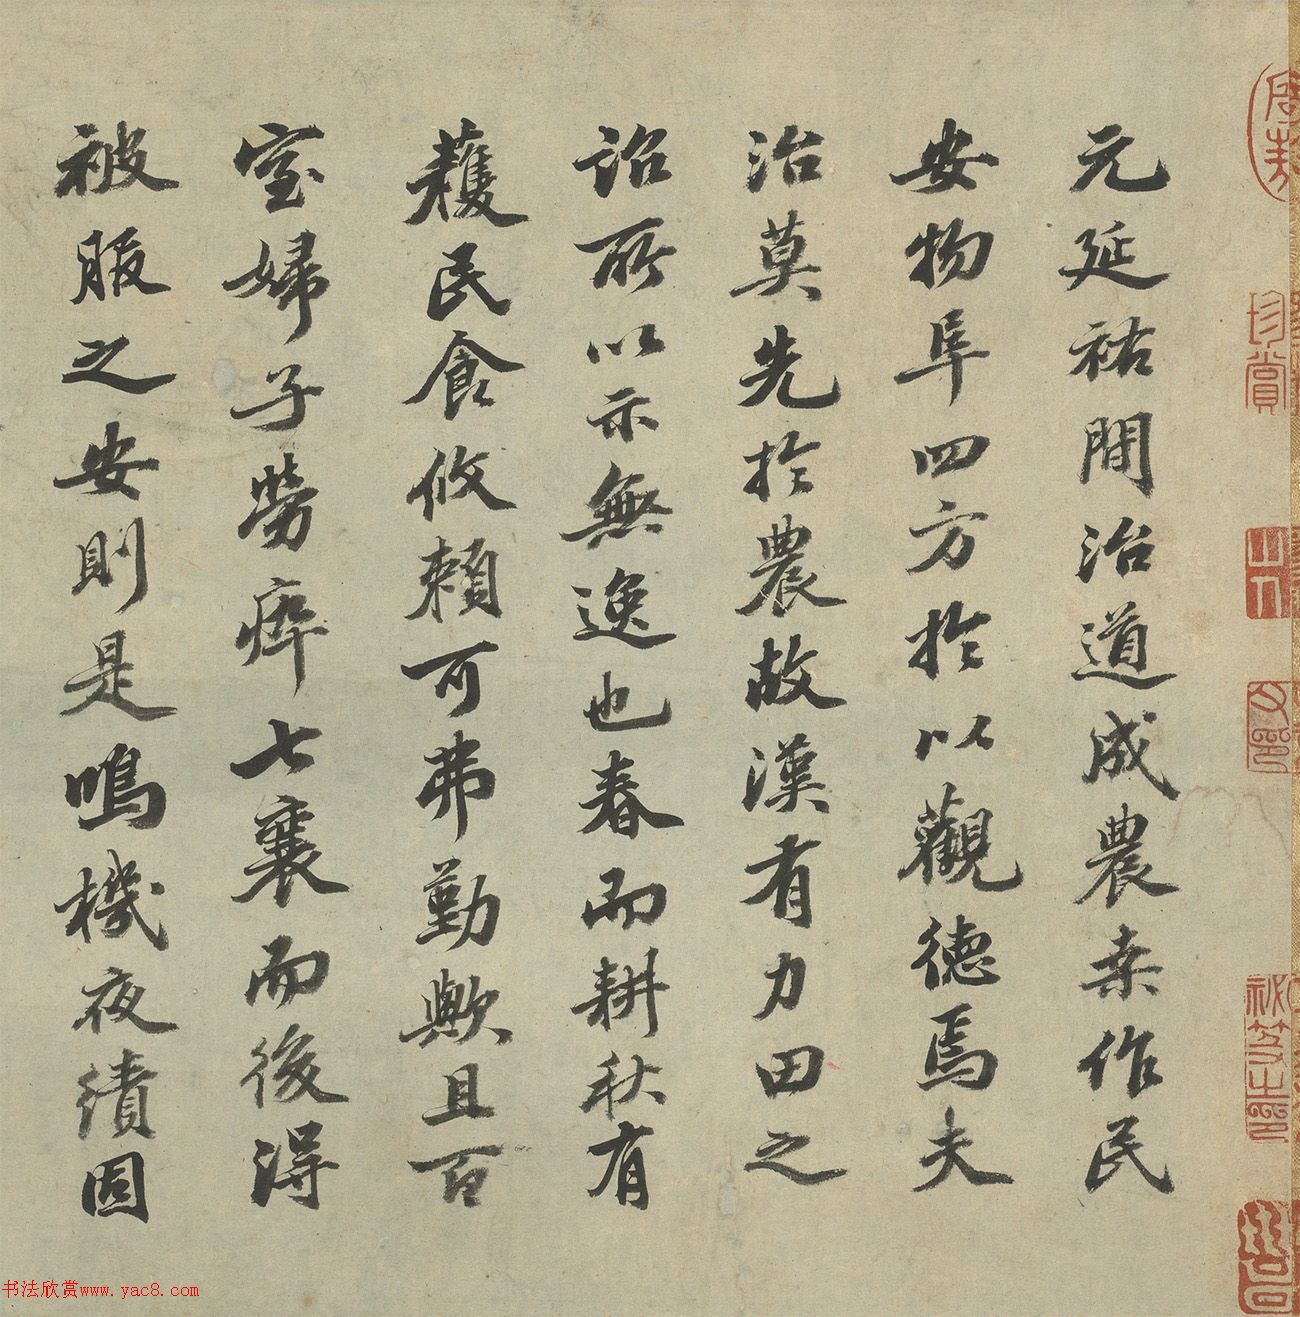 元延祐間治道成農桒作民
安物阜四方於以觀德焉夫
治莫先於農故漢有力田之
詔所以示無逸也春而耕秋有
穫民食攸賴可弗勤歟且百
室婦子勞瘁七襄而後得
被服之安則是鳴機夜績固
珍賞
书法欣赏www.yac8.com